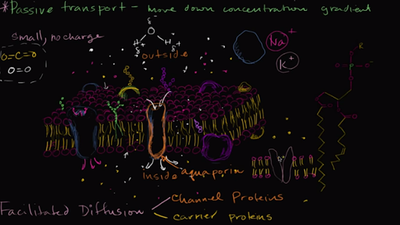 *Passive transport - move down concentration gradient
small, no charge
O=C=O
O=O
δ- δ-
O
H H
δ+ δ+
outside
Na+
K+
R
P
inside
aquaporin
Facilitated Diffusion
Channel Proteins
Carrier Proteins